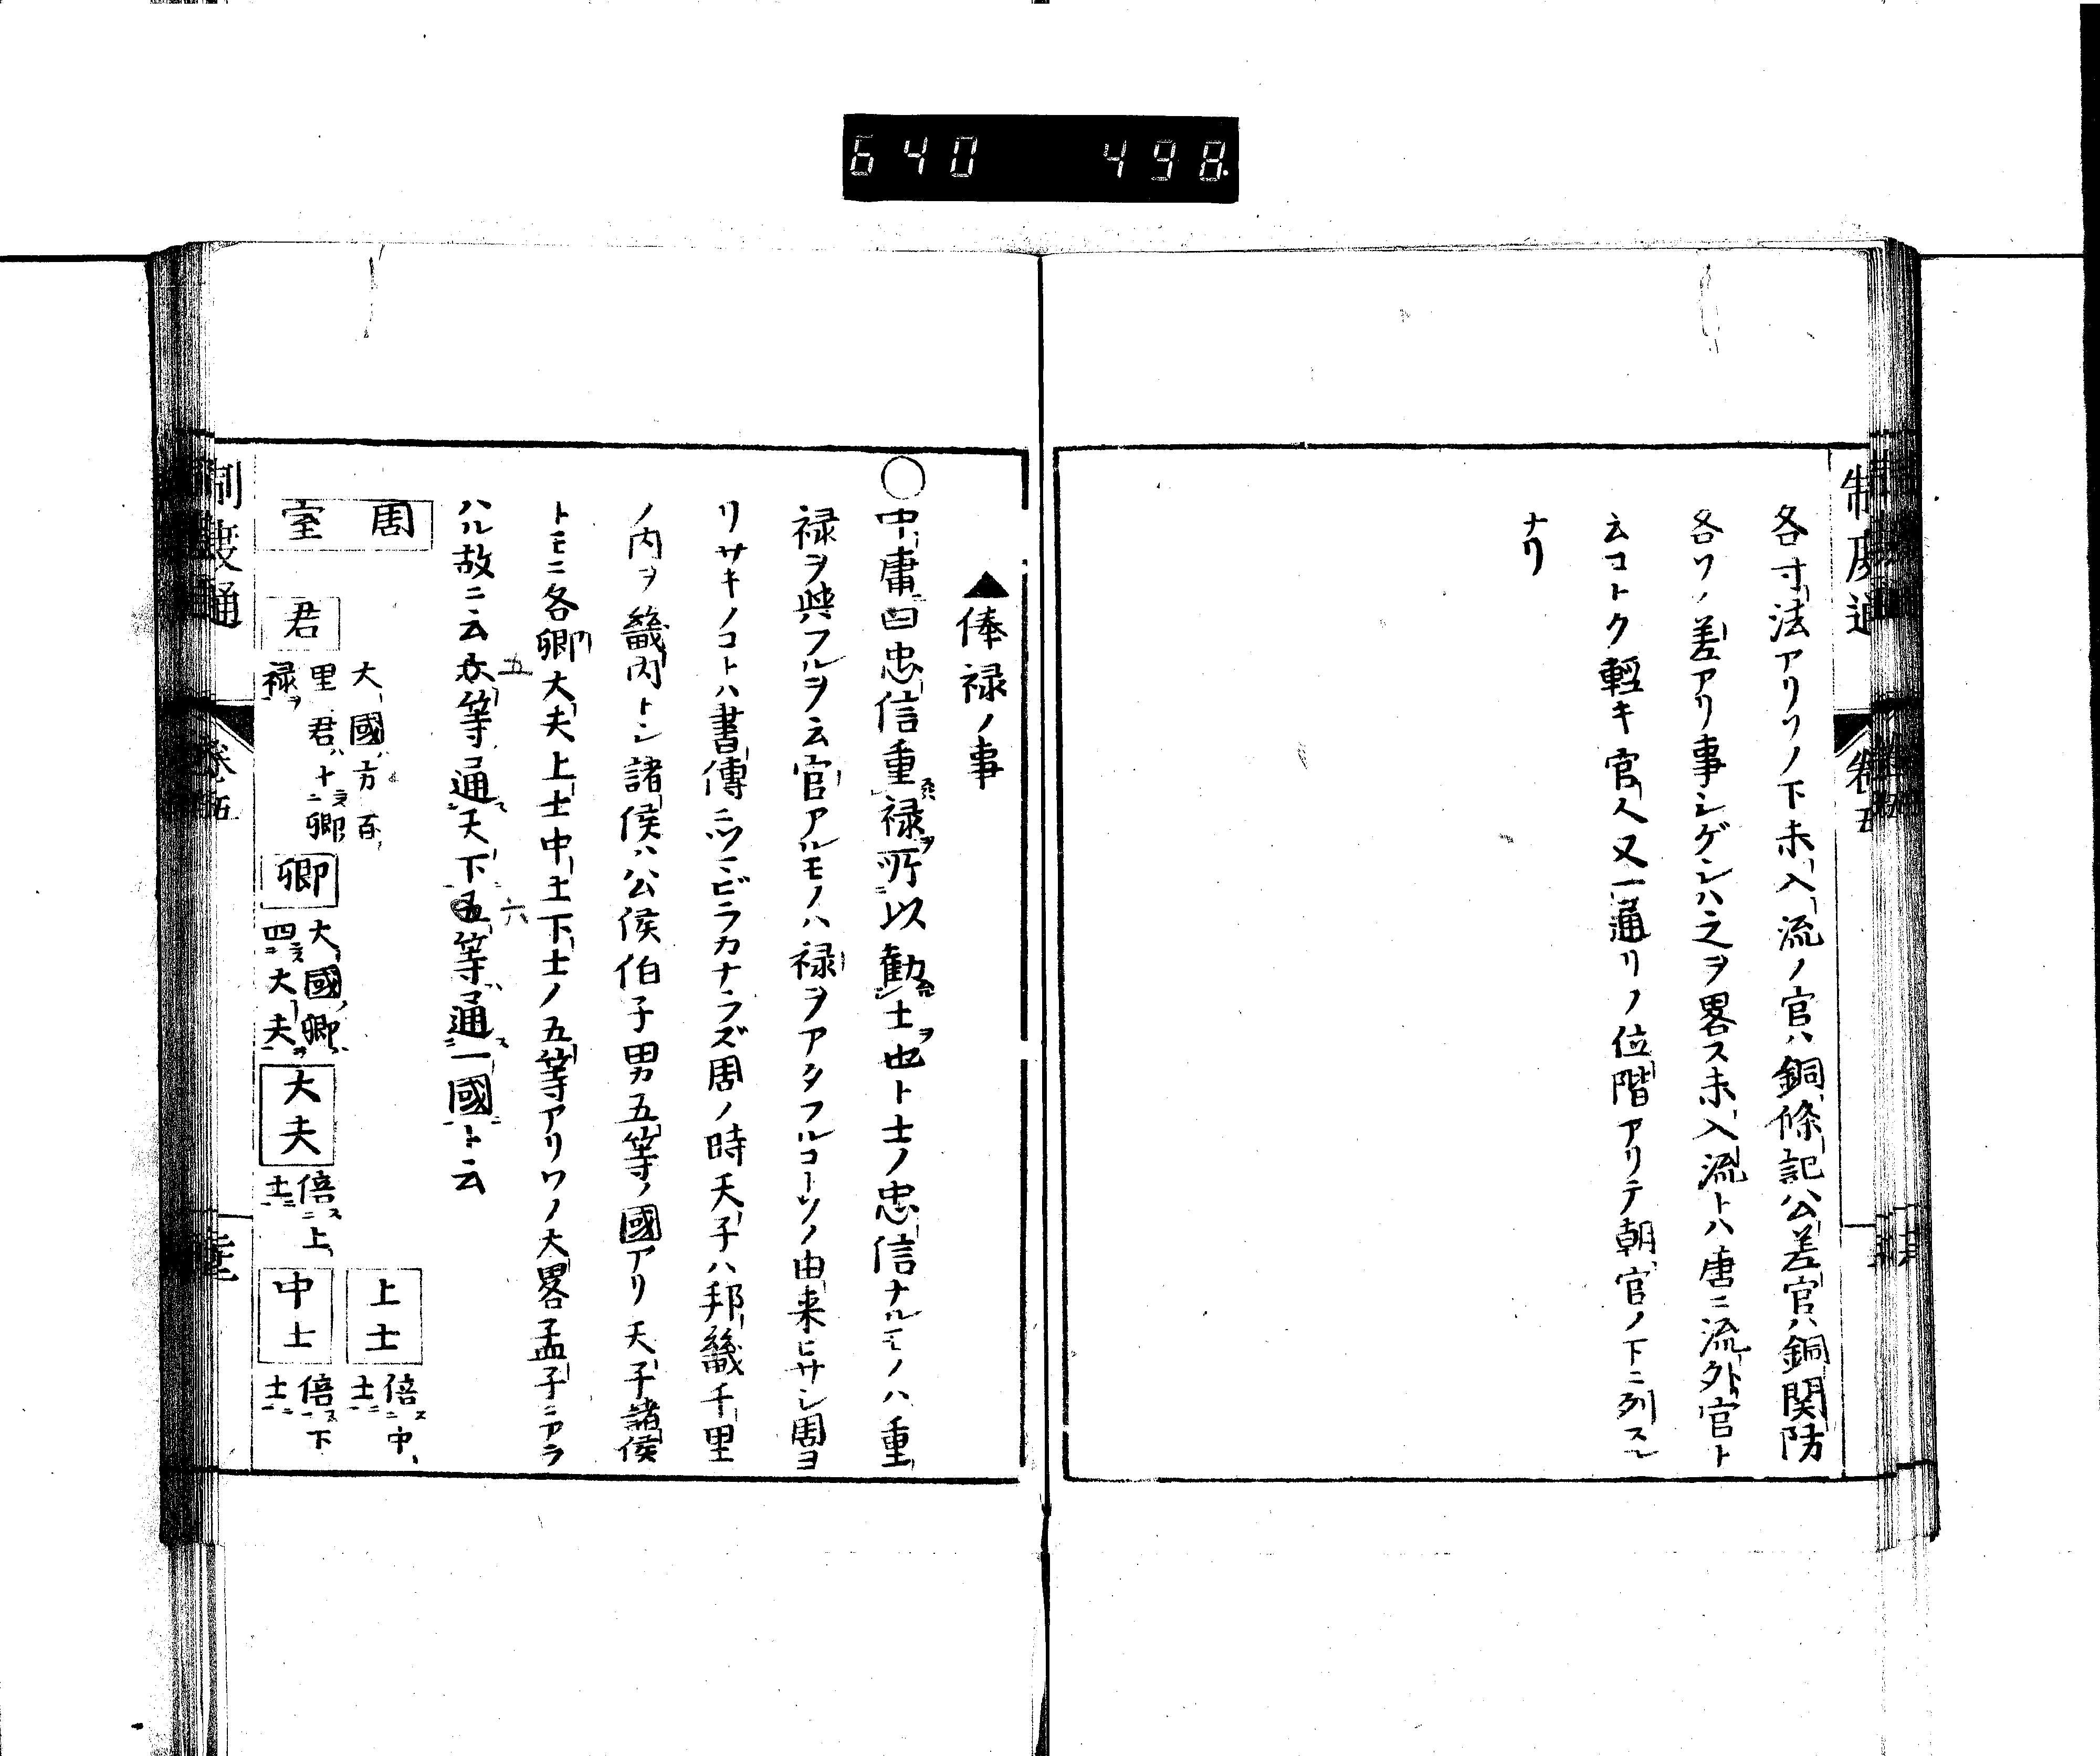 640 498
制度通 卷五
各寸法アリソノ下未入流ノ官ハ銅條記公差官ハ銅関防
各ソノ差アリ事シゲシハ之ヲ畧ス未入流トハ唐ニ流外官ト
云コトク軽キ官人又一通リノ位階アリテ朝官ノ下ニ列スル
ナリ
▲俸禄ノ事
○中庸曰忠信重禄所以勸士也ト士ノ忠信ナルモノハ重
禄ヲ與フルヲ云官アルモノハ禄ヲアタフルコトソノ由来ヒサシ周ヨ
リサキノコトハ書傳ニツマビラカナラズ周ノ時天子ハ邦畿千里
ノ内ヲ畿内トシ諸侯ハ公侯伯子男五等ノ國アリ天子諸侯
トモニ各卿大夫上士中士下士ノ五等アリソノ大畧孟子ニアラ
ハル故ニ云五等通天下六等通一國ト云
周室
君
大國方百
里君十卿
禄
卿
大國卿
四大夫
大夫
倍上
士
上士
倍中
士
中士
倍下
士
制度通 卷五